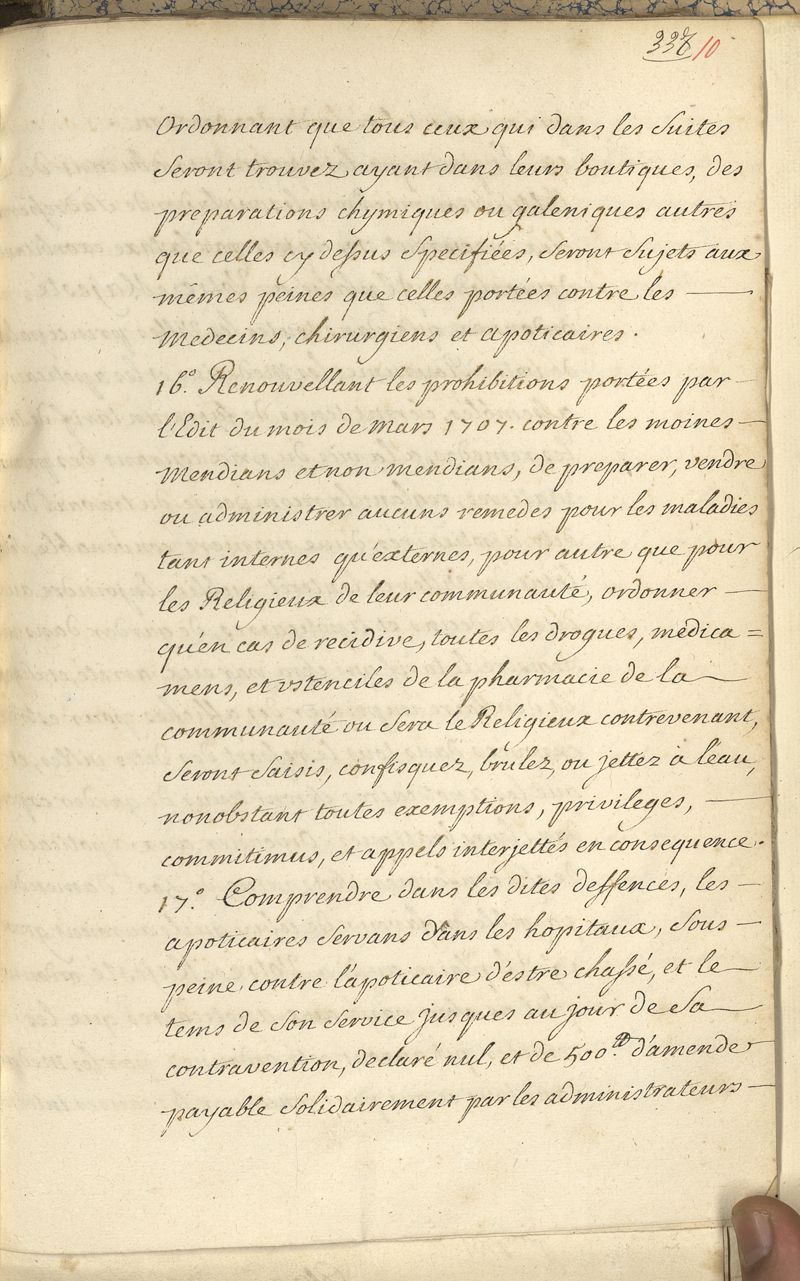 10
Ordonnant que tous ceux qui dans les Suites
Seront trouvez ayant dans leurs boutiques, des
preparations chymiques ou galeniques autres
que celles cy dessus Specifiées, Seront Sujets aux
mêmes peines que celles portées contre les —
Medecins, chirurgiens et apoticaires.
16.° Renouvellant les prohibitions portées par —
l'Edit du mois de Mars 1707. contre les moines —
Mendians et non mendians, de preparer, vendre
ou administrer aucuns remedes pour les maladies
tant internes qu'externes, pour autre que pour
les Religieux de leur communauté, ordonner —
qu'en cas de recidive, toutes les drogues, medica=
mens, et vstenciles de la pharmacie de la —
communauté ou Sera le Religieux contrevenant,
Seront Saisis, confisquez, brulez, ou jettez à l'eau,
nonobstant toutes exemptions, privileges, —
commitimus, et appels interjettés en consequence.
17.° Comprendre dans les dites deffences, les —
apoticaires Servans dans les hopitaux, Sous —
peine contre l'apoticaire d'estre chassé, et le —
tems de Son Service jusques au jour de Sa —
contravention, declaré nul, et de 500.ᵗᵗ d'amende
payable Solidairement par les administrateurs —